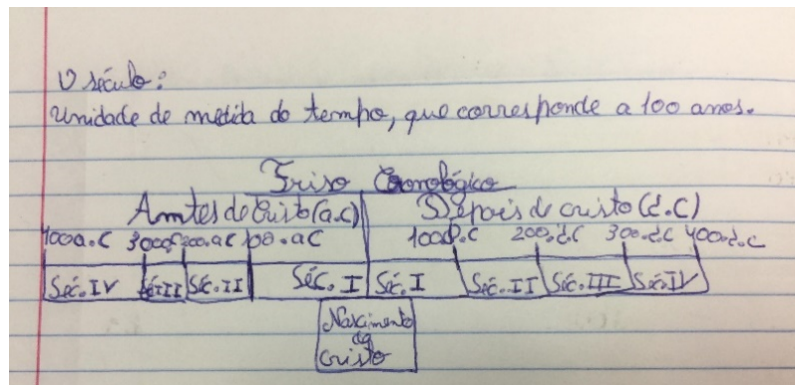 O século:
Unidade de medida do tempo, que corresponde a 100 anos.
Friso Cronológico
Antes de Cristo (a.C) Depois de cristo (d.C)
400a.C 300a.C 200.aC 100.aC 100d.C 200.d.C 300.d.C 400.d.C
Séc. IV Séc III Séc. II Séc. I Séc. I Séc. II Séc. III Séc. IV
Nascimento
de
Cristo